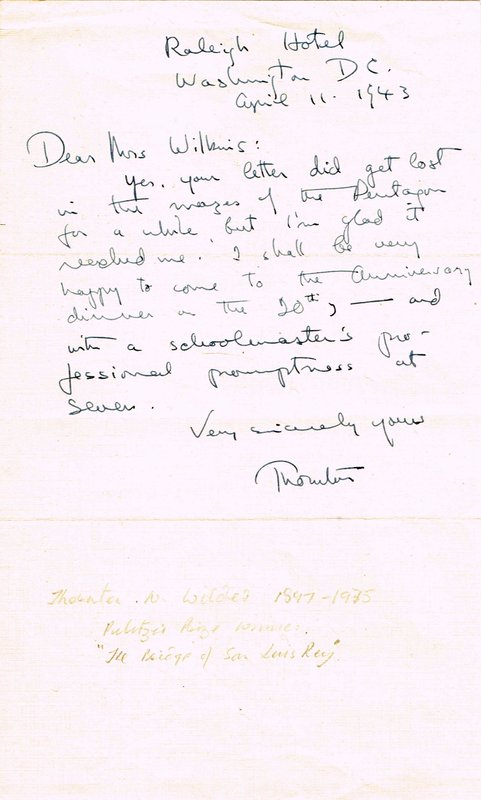 Raleigh Hotel
Washington D C.
April 11. 1943
Dear Mrs Wilkins:
Yes, your letter did get lost
in the mazes of the Pentagon
for a while but I'm glad it
reached me. I shall be very
happy to come to the Anniversary
dinner on the 20th, — and
with a schoolmaster's pro-
fessional promptness at
seven.
Very sincerely yours
Thornton
Thornton . N. Wilder 1897-1975
Pulitzer Prize winner.
"The Bridge of San Luis Rey".